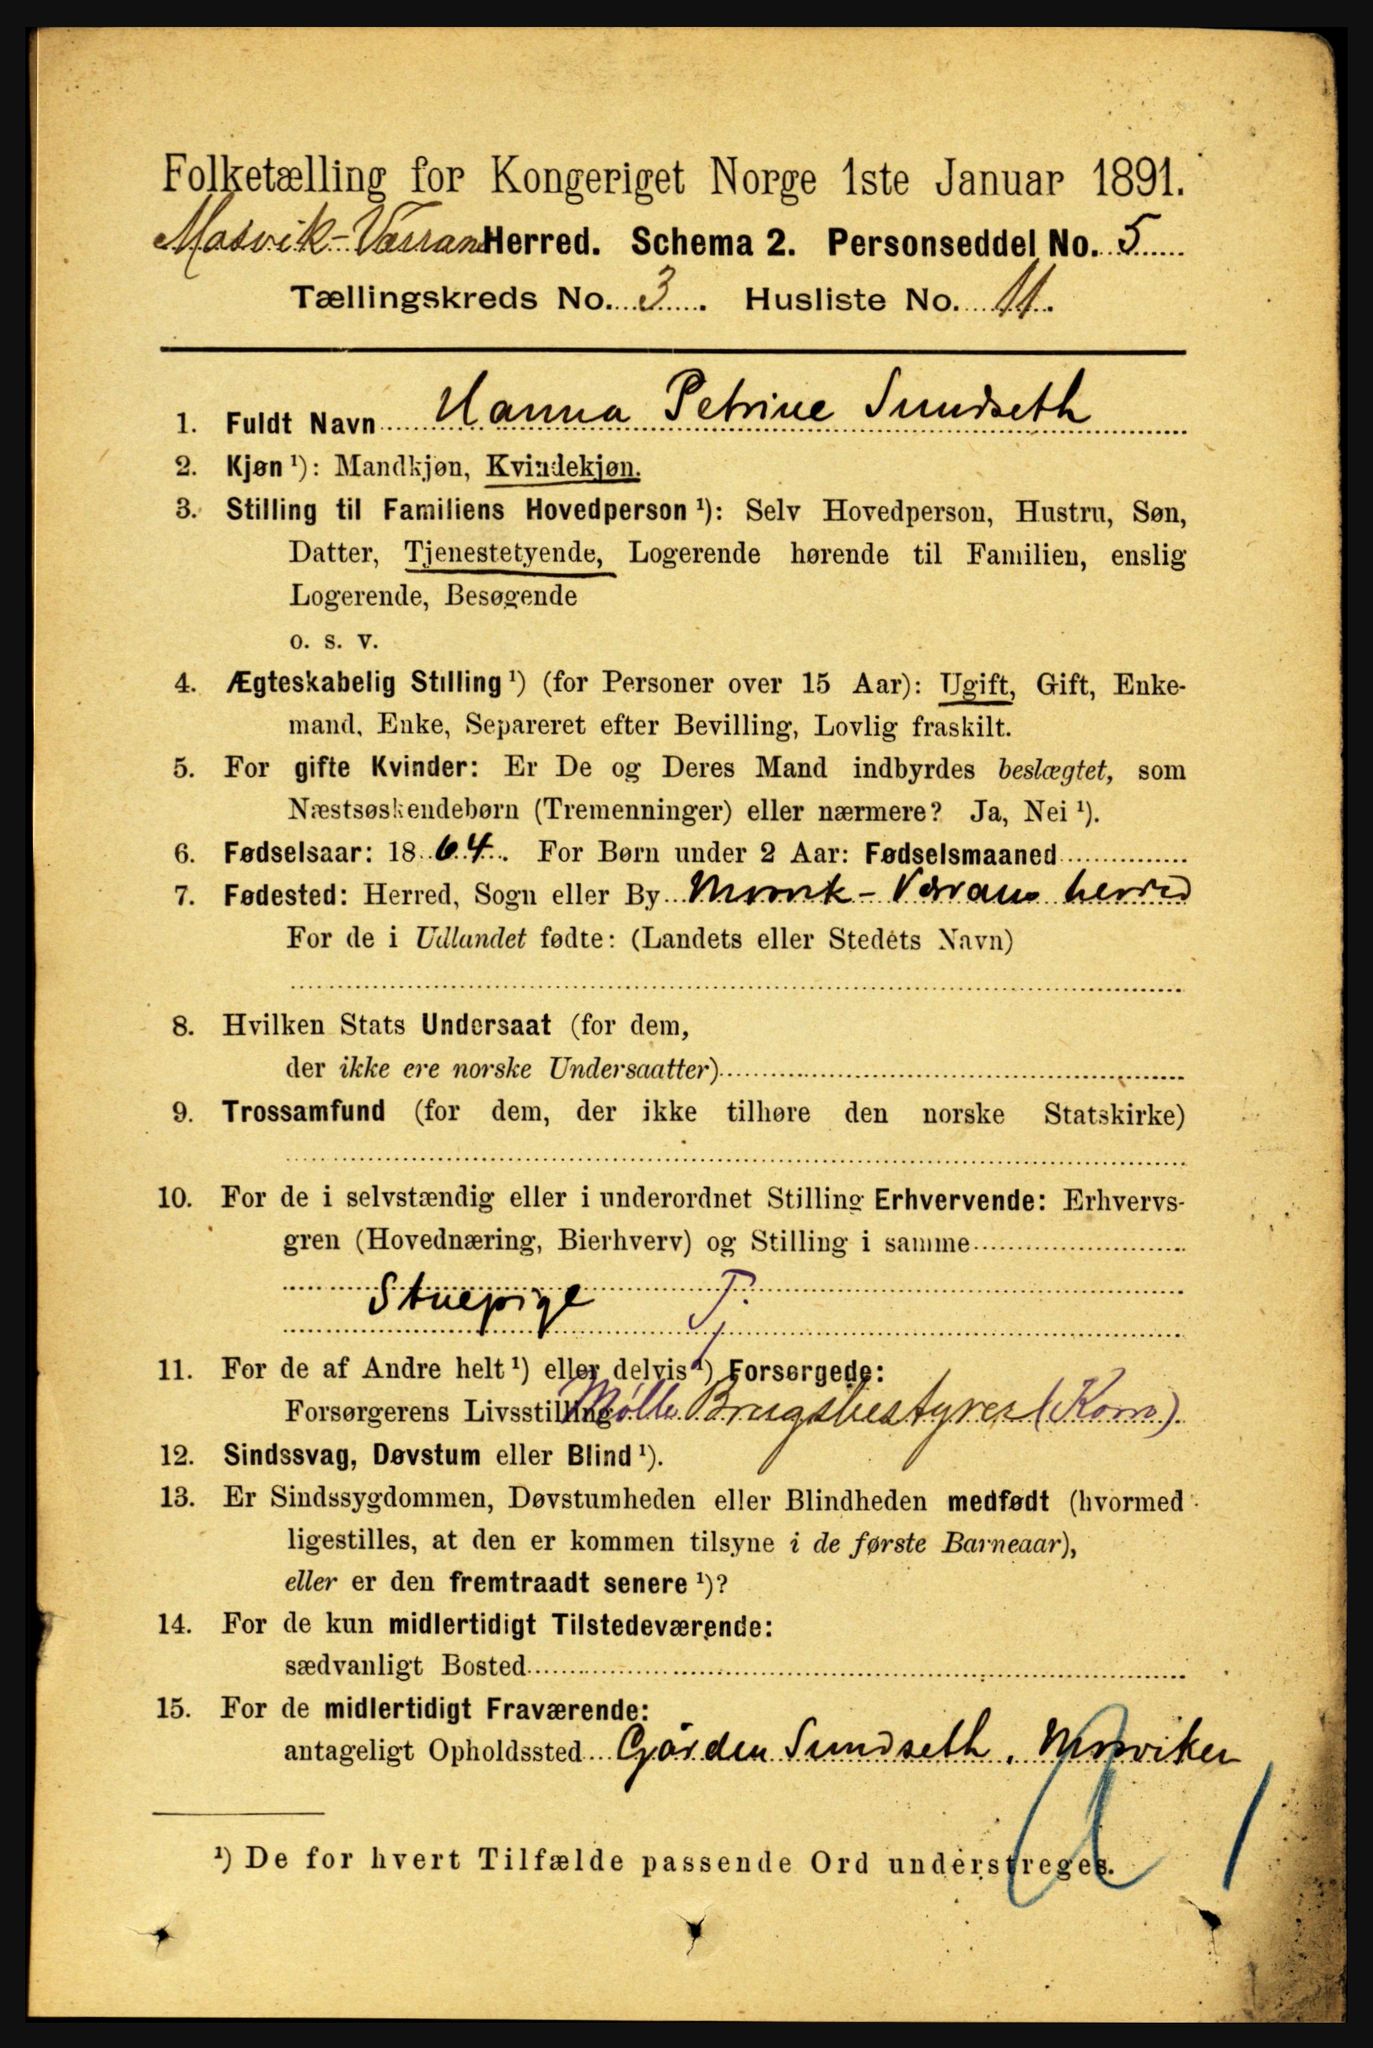 Folketælling for Kongeriget Norge 1ste Januar 1891.
Mosvik-Værran Herred. Schema 2. Personseddel No. 5
Tællingskreds No. 3. Husliste No. 11.
1. Fuldt Navn Hanna Petrine Sundseth
2. Kjøn ¹): Mandkjøn, Kvindekjøn.
3. Stilling til Familiens Hovedperson ¹): Selv Hovedperson, Hustru, Søn,
Datter, Tjenestetyende, Logerende hørende til Familien, enslig
Logerende, Besøgende
o. s. v.
4. Ægteskabelig Stilling ¹) (for Personer over 15 Aar): Ugift, Gift, Enke-
mand, Enke, Separeret efter Bevilling, Lovlig fraskilt.
5. For gifte Kvinder: Er De og Deres Mand indbyrdes beslægtet, som
Næstsøskendebørn (Tremenninger) eller nærmere? Ja, Nei ¹).
6. Fødselsaar: 1864. For Børn under 2 Aar: Fødselsmaaned
7. Fødested: Herred, Sogn eller By Mosvik-Værrans herred
For de i Udlandet fødte: (Landets eller Stedets Navn)
8. Hvilken Stats Undersaat (for dem,
der ikke ere norske Undersaatter)
9. Trossamfund (for dem, der ikke tilhøre den norske Statskirke)
10. For de i selvstændig eller i underordnet Stilling Erhvervende: Erhvervs-
gren (Hovednæring, Bierhverv) og Stilling i samme
Stuepige Tj.
11. For de af Andre helt ¹) eller delvis ¹) Forsørgede:
Forsørgerens Livsstilling Mølle Brugsbestyrer (Korn).
12. Sindssvag, Døvstum eller Blind ¹).
13. Er Sindssygdommen, Døvstumheden eller Blindheden medfødt (hvormed
ligestilles, at den er kommen tilsyne i de første Barneaar),
eller er den fremtraadt senere ¹)?
14. For de kun midlertidigt Tilstedeværende:
sædvanligt Bosted
15. For de midlertidigt Fraværende:
antageligt Opholdssted Gården Sundseth, Mosviken
¹) De for hvert Tilfælde passende Ord understreges.